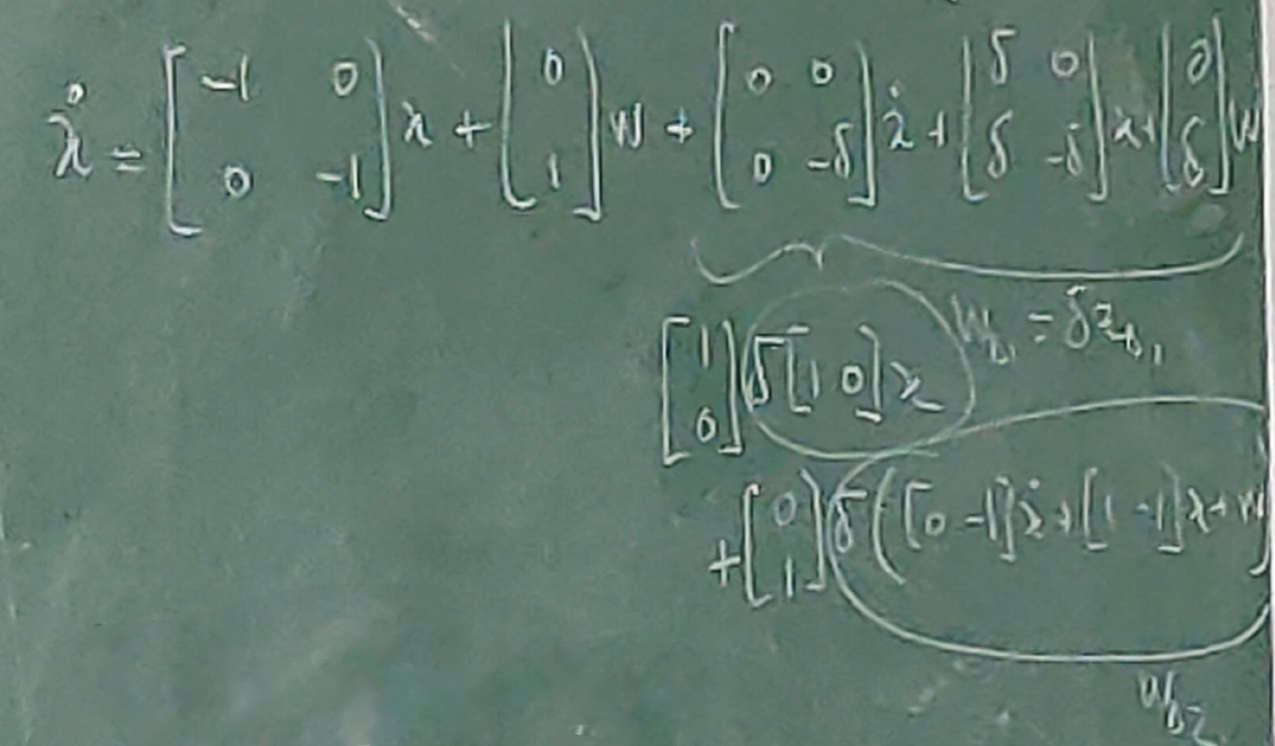 ẋ = [-1 0; 0 -1] x + [0; 1] w + [0 0; 0 -δ] ẋ + [δ 0; δ -δ] x + [0; δ] w
[1; 0] δ [1 0] x w_{Δ1} = δ z_{Δ1}
+ [0; 1] δ ( [0 -1] ẋ + [1 -1] x + w )
w_{Δ2}